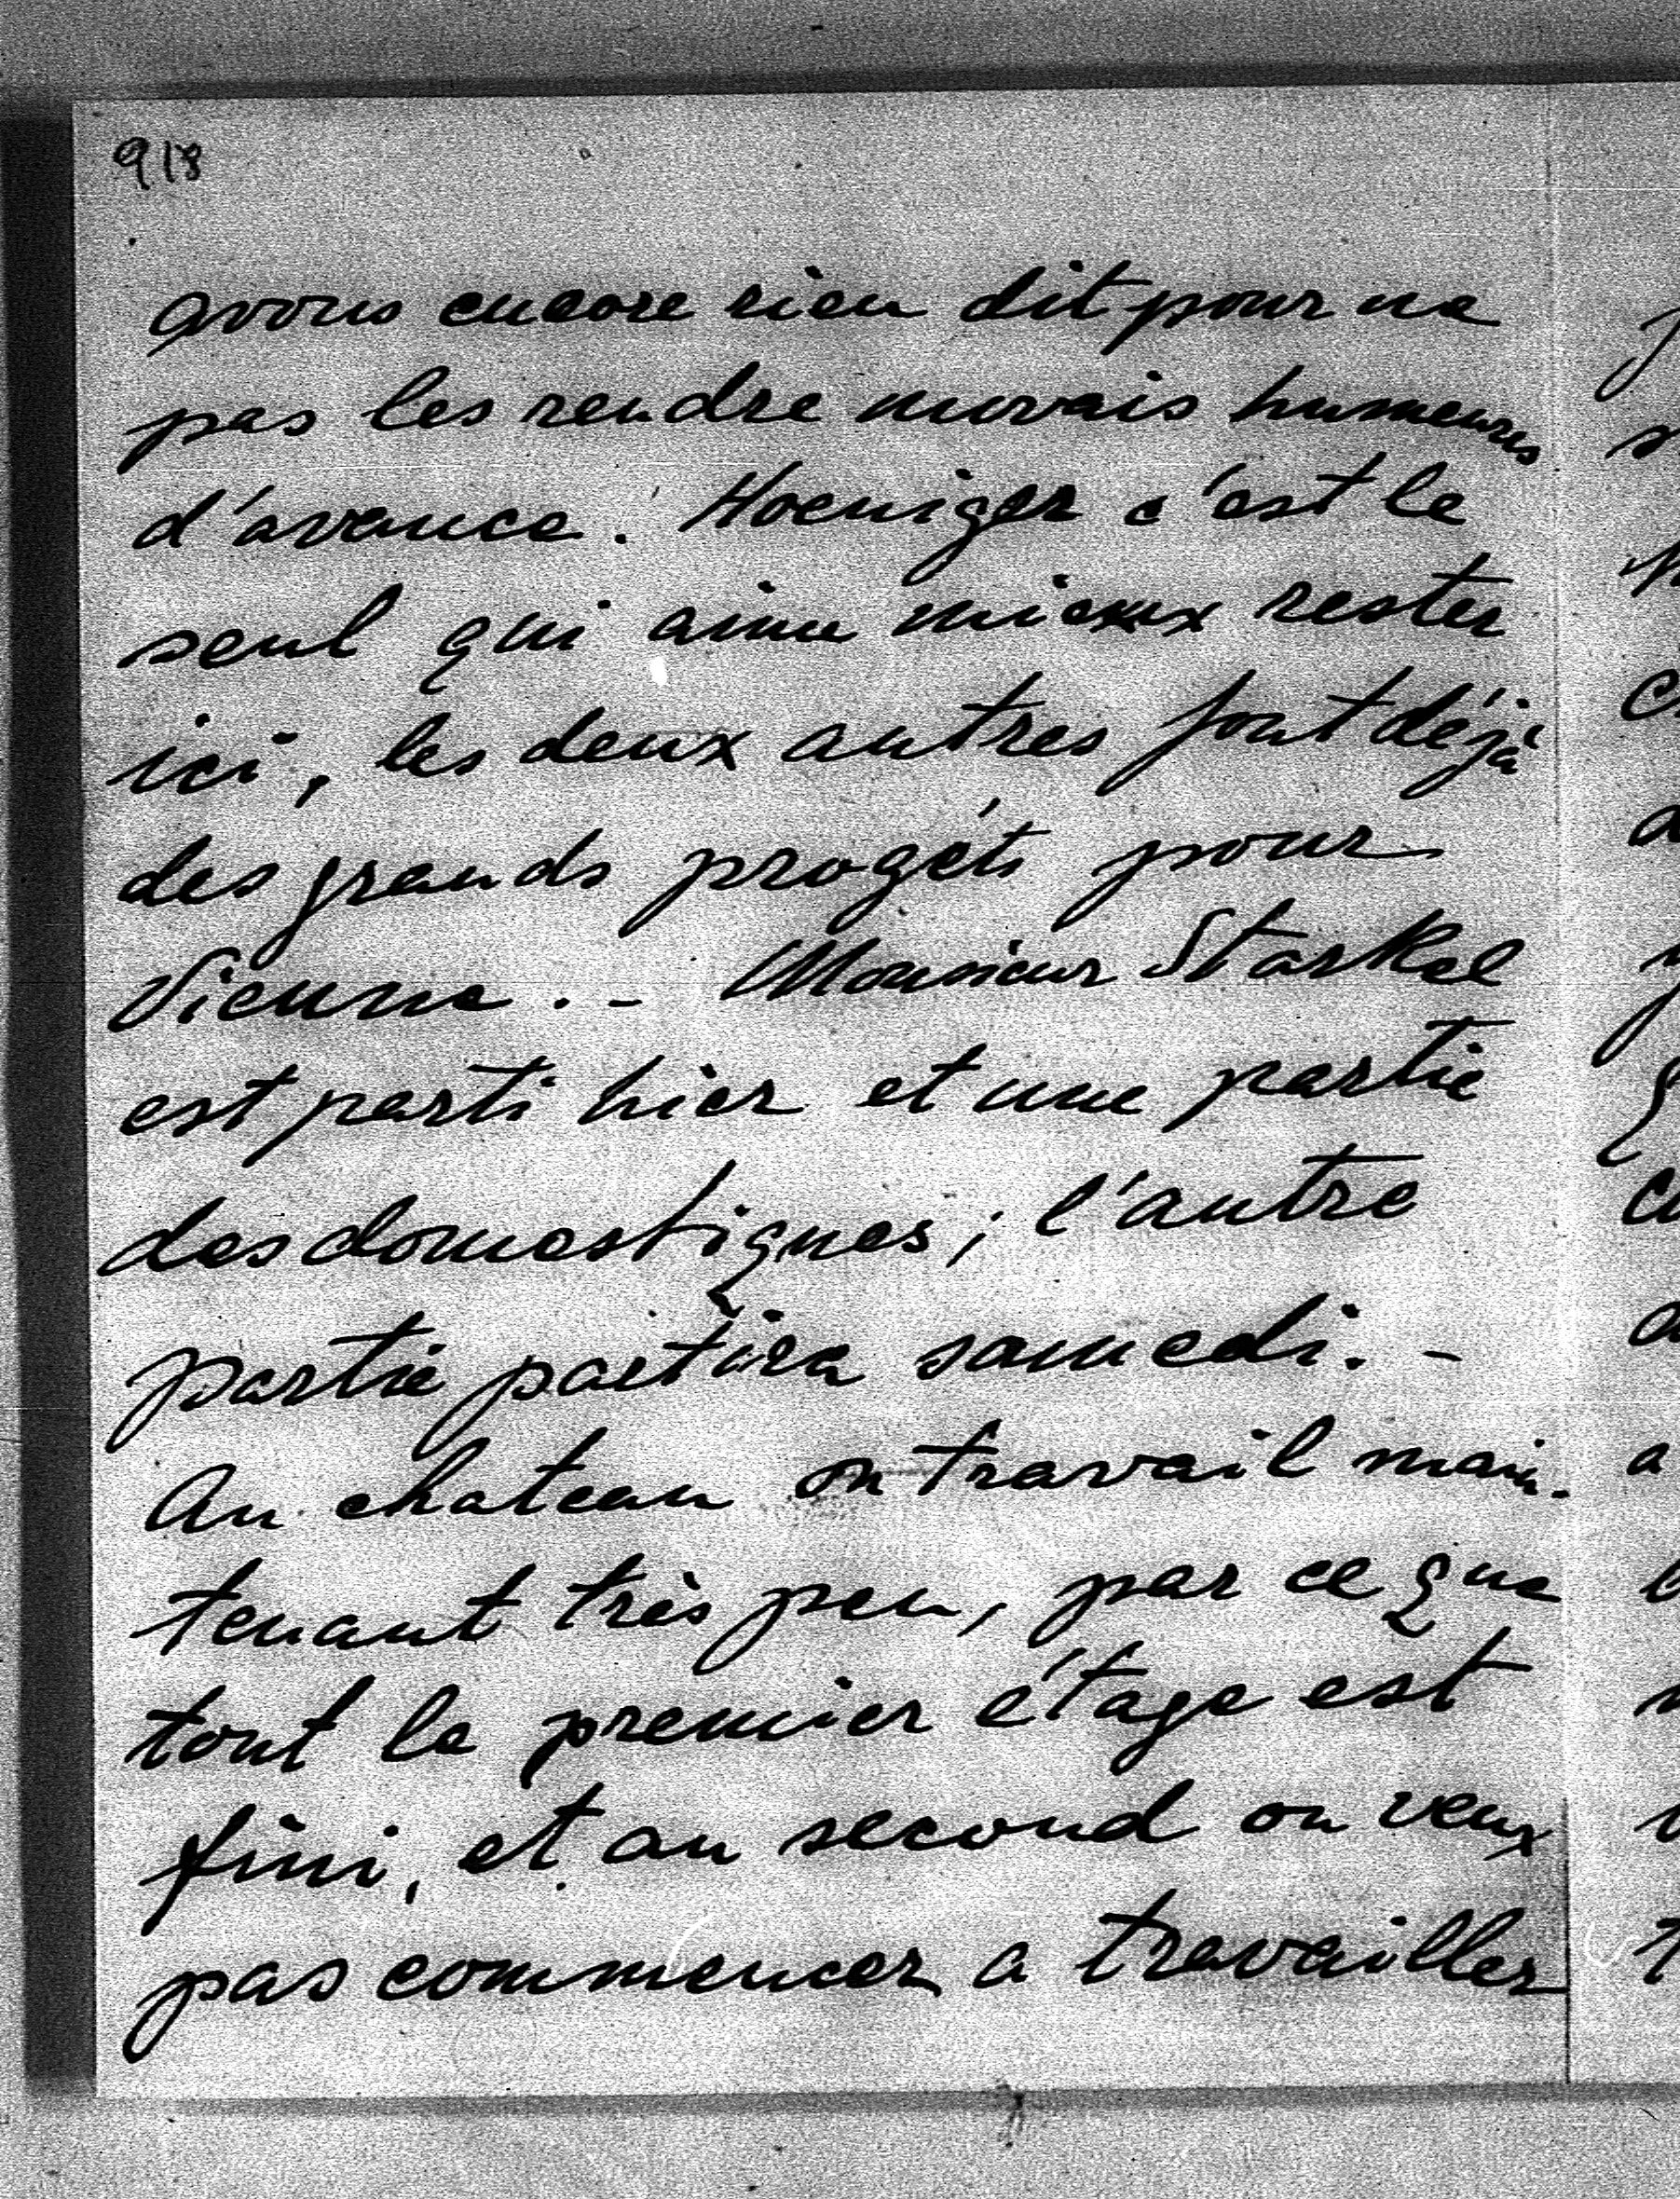 918
avons encore rien dit pour ne
pas les rendre muvais humeures
d'avance. Hoeniger c'est le
seul qui aime mieux rester
ici, les deux autres font déjà
des grands progéts pour
Vienne. - Monsieur Starkel
est parti hier et une partie
des domestiques; l'autre
partie partira samedi. -
Au chateau on travail main-
tenant très peu, par ce que
tout le premier étage est
fini, et au second on veux
pas commencer a travailler